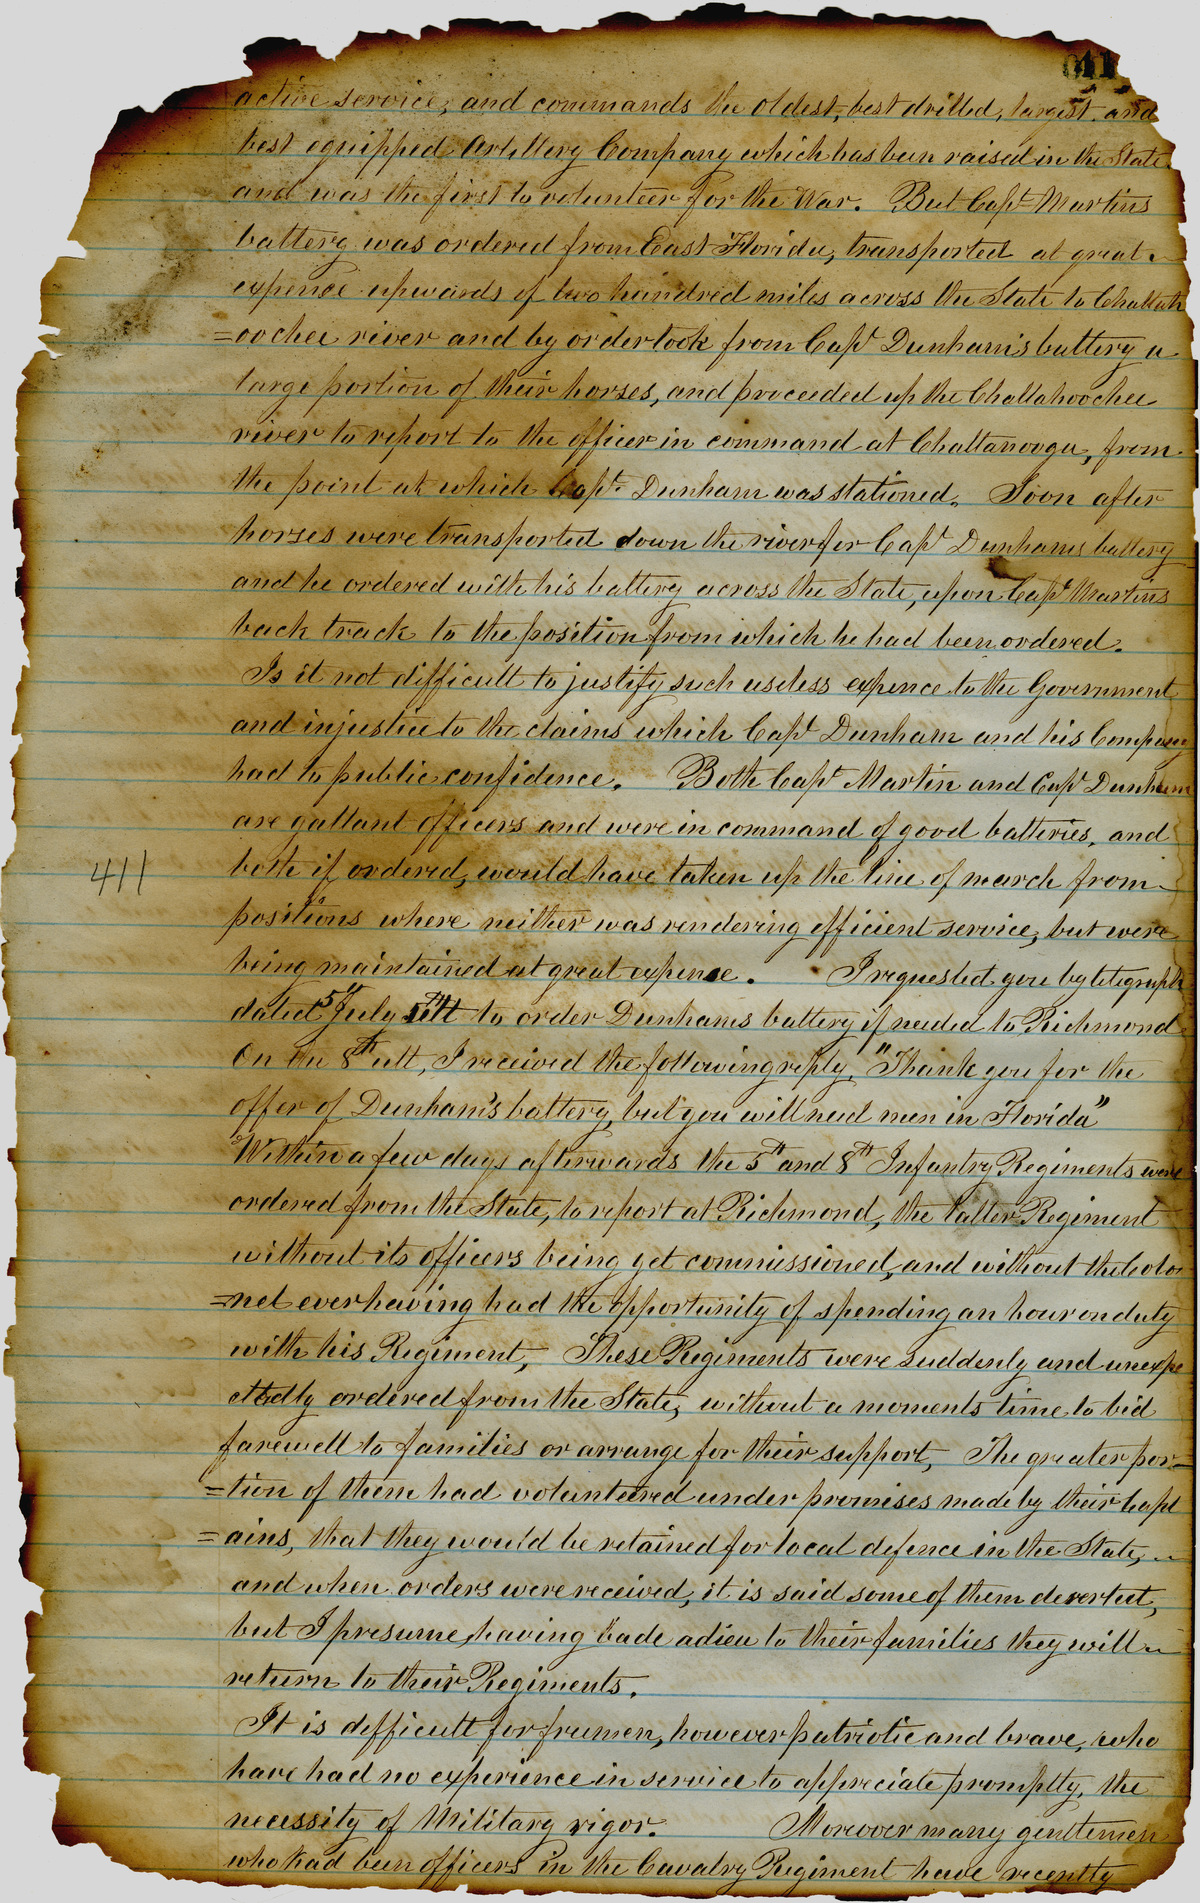 411
active service, and commands the oldest, best drilled, largest and
best equipped Artillery Company which has been raised in the State
and was the first to volunteer for the War. But Capt Martins
battery was ordered from East Florida, transported at great
expense upwards of two hundred miles across the State to Chattah
=oochee river and by order took from Capt Dunham's battery a
large portion of their horses, and proceeded up the Chattahoochee
river to report to the officer in command at Chattanooga, from
the point at which Capt. Dunham was stationed. Soon after
horses were transported down the river for Capt Dunhams battery
and he ordered with his battery across the State, upon Capt Martins
back track to the position from which he had been ordered.
Is it not difficult to justify such useless expence to the Government
and injustice to the claims which Capt Dunham and his Company
had to public confidence. Both Capt Martin and Capt Dunham
are gallant officers and were in command of good batteries, and
both if ordered, would have taken up the line of march from
411
positions where neither was rendering efficient service, but were
being maintained at great expense. I requested you by telegraph
dated 5" July to order Dunhams battery if needed to Richmond
On the 8th ult, I received the following reply, "Thank you for the
offer of Dunham's battery, but you will need men in Florida"
Within a few days afterwards the 5th and 8th Infantry Regiments were
ordered from the State, to report at Richmond, the latter Regiment
without its officers being yet commissioned, and without the Colo
=nel ever having had the opportunity of spending an hour on duty
with his Regiment, These Regiments were suddenly and unexpe
ctedly ordered from the State, without a moments time to bid
farewell to families or arrange for their support, The greater por-
=tion of them had volunteered under promises made by their Capt
=ains, that they would be retained for local defence in the State,
and when orders were received, it is said some of them deserted,
but I presume, having bade adieu to their families they will
return to their Regiments.
It is difficult for freemen, however patriotic and brave, who
have had no experience in service to appreciate promptly, the
necessity of Military rigor. Moreover many gentlemen
who had been officers in the Cavalry Regiment have recently